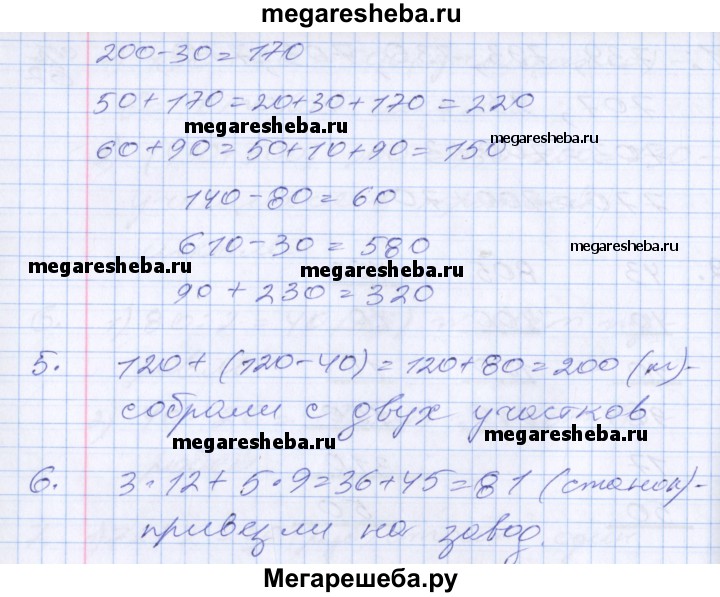 megaresheba.ru
200-30=170
50+170=20+30+170=220
megaresheba.ru
megaresheba.ru
60+90=50+10+90=150
140-80=60
610-30=580
megaresheba.ru
megaresheba.ru
megaresheba.ru
90+230=320
5. 120+(120-40)=120+80=200 (м)-
собрали с двух участков
megaresheba.ru
megaresheba.ru
6. 3·12+5·9=36+45=81 (станок)-
привезли на завод.
Мегарешеба.ру